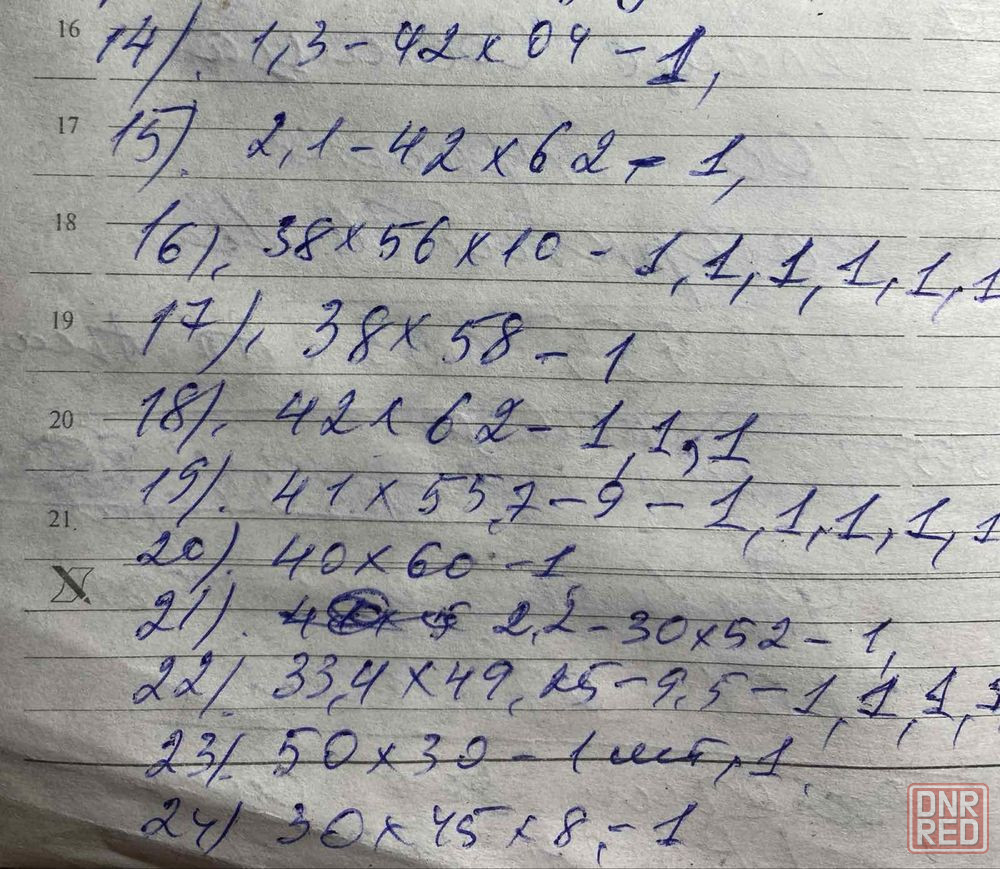 16 14). 1,3 - 42 x 04 - 1,
17 15). 2,1 - 42 x 62 - 1,
18 16). 38 x 56 x 10 - 1, 1, 1, 1, 1, 1
19 17). 38 x 58 - 1
20 18). 42 x 62 - 1, 1, 1
19). 41 x 55,7 - 9 - 1, 1, 1, 1, 1
21. 20). 40 x 60 - 1,
21). 2,2 - 30 x 52 - 1,
22). 33,4 x 49,25 - 9,5 - 1, 1, 1, 1
23). 50 x 30 - 1 шт, 1,
24) 30 x 45 x 8, - 1
DNR
RED